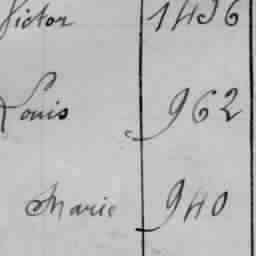 Victor 1436
Louis 962
Marie 940